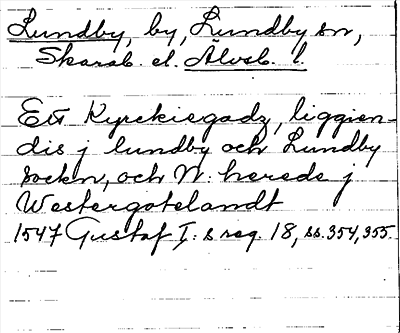 Lundby, by, Lundby sn,
Skarab. el. Älvsb. l.
Ett Kyrckiegodz, liggien-
dis j lundby och Lundby
sockn, och W. herede j
Westergotelandt
1547 Gustaf I: s reg. 18, ss. 354, 355.